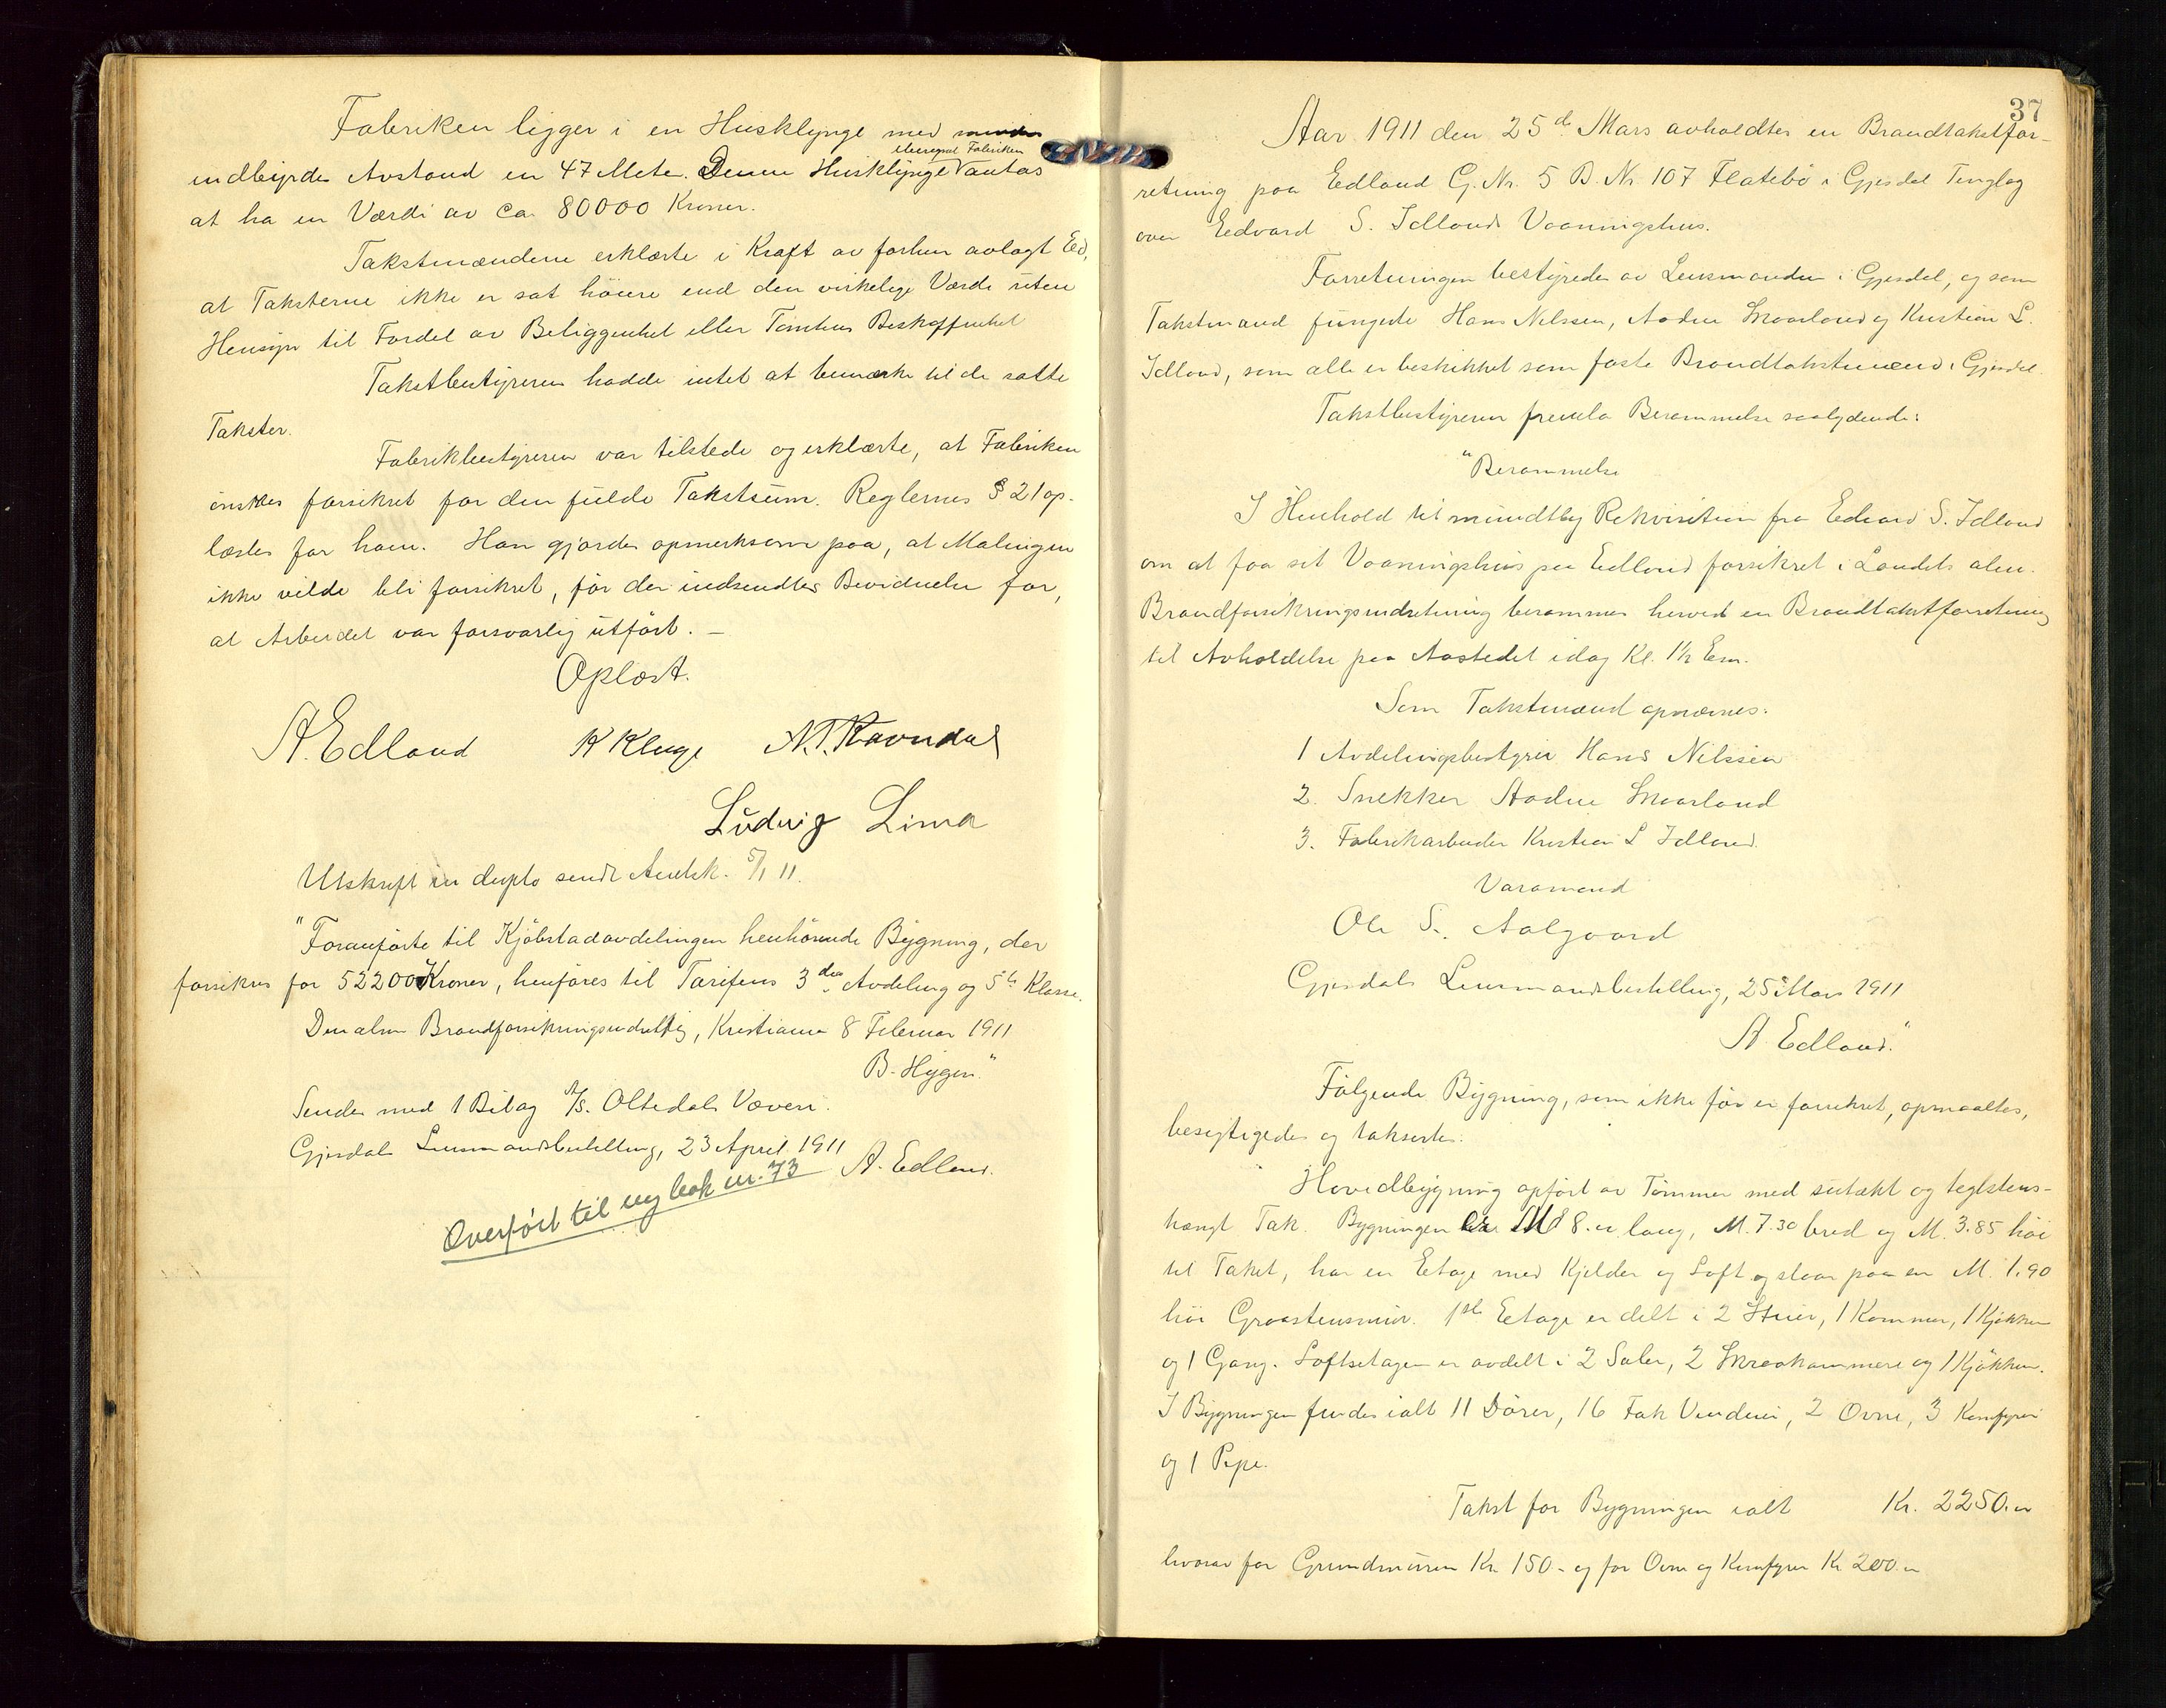 Fabriken ligger i en Husklynge med mindre
indbyrdes Avstand en 47 Meter. Denne Husklynge iberegnet Fabriken antas
at ha en Værdi av ca 80000 Kroner.
Takstmændene erklærte i Kraft av forhen avlagt Ed,
at Taksterne ikke er sat höiere end den virkelige Værdi uten
Hensyn til Fordel av Beliggenhet eller Tomtens Beskaffenhet
Takstbestyreren hadde intet at bemærke til de satte
Takster.
Fabrikbestyreren var tilstede og erklærte, at Fabriken
önskes forsikret for den fulde Takstsum. Reglernes § 21 op-
læstes for ham. Han gjordes opmerksom paa, at Malingen
ikke vilde bli forsikret, för der indsendtes Bevidnelse for,
at Arbeidet var forsvarlig utfört. –
Oplæst.
A. Edland K Kluge N. T. Ravndal
Ludvig Lima
Utskrift in duplo sendt Amtsk. 5/1 11.
"Foranförte til Kjöbstadavdelingen henhörende Bygning, der
forsikres for 52200 Kroner, henföres til Tarifens 3die Avdeling og 5te Klasse.
Den alm Brandforsikringsindretng, Kristiania 8 Februar 1911
B. Hygen."
Sendes med 1 Bilag A/S. Oltedals Væveri.
Gjesdals Lensmandsbestilling, 23 April 1911
A. Edland.
Overfört til ny bok nr. 73
37
Aar 1911 den 25de Mars avholdtes en Brandtakstfor-
retning paa Edland G. Nr. 5 B. Nr. 107 Flatebö i Gjesdal Tinglag
over Edvard S. Idlands Vaaningshus.
Forretningen bestyredes av Lensmanden i Gjesdal, og som
Takstmænd fungerte Hans Nilssen, Aadne Skaarland og Kristian L.
Idland, som alle er beskikket som faste Brandtakstmænd i Gjesdal.
Takstbestyreren fremla Berammelse saalydende:
"Berammelse
I Henhold til mundtlig Rekvisition fra Edvard S. Idland
om at faa sit Vaaningshus paa Edland forsikret i Landets alm.
Brandforsikringsindretning berammes herved en Brandtakstforretning
til Avholdelse paa Aastedet idag Kl. 1½ Em.
Som Takstmænd opnævnes:
1 Avdelingsbestyrer Hans Nilssen
2. Snekker Aadne Skaarland
3. Fabrikarbeider Kristian L Idland.
Varamand
Ole S. Aalgaard
Gjesdals Lensmandsbestilling, 25 Mars 1911
A. Edland."
Fölgende Bygning, som ikke för er forsikret, opmaaltes,
besigtigedes og taksertes:
Hovedbygning opfört av Tömmer med sutækt og teglstens-
hængt Tak. Bygningen er M 8.00 lang, M. 7.30 bred og M. 3.85 höi
til Taket, har en Etage med Kjelder og Loft og staar paa en M. 1.90
höi Graastensmur. 1ste Etage er delt i 2 Stuer, 1 Kammer, 1 Kjökken
og 1 Gang. Loftsetagen er avdelt i 2 Saler, 2 Skraakammere og 1 Kjökken.
I Bygningen findes ialt 11 Dörer, 16 Fak Vinduer, 2 Ovne, 3 Komfyrer
og 1 Pipe.
Takst for Bygningen ialt Kr. 2250.00
hvorav for Grundmuren Kr. 150.- og for Ovne og Komfyrer Kr 200.00